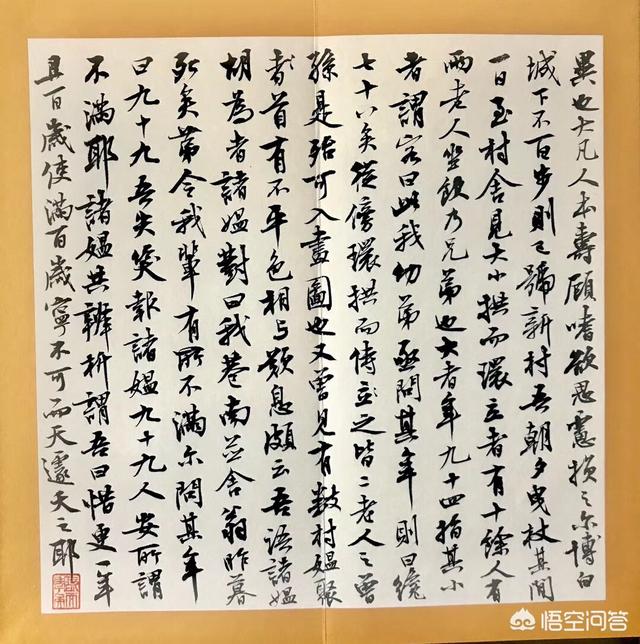 異也大凡人本專顧嗜欲思慮損之尔博白
城下不百步則已號新村吾朝夕曳杖其間
一日至村舍見大小拱而環立者有十餘人有
兩老人坐飲乃兄弟也大者年九十四指其小
者謂客曰此我幼弟亟問其年則曰纔
七十八矣從傍環拱而侍立之皆二老人之曾
孫是殆可入畫圖也又曾見有數村媼聚
首有不平色相與歎息頗云吾語諸媼
胡為者諸媼對曰我巷南舍翁昨暮
死矣第令我輩有所不滿尔問其年
曰九十九吾失笑報諸媼九十九人安所謂
不滿耶諸媼共辨析謂吾曰惜更一年
且百歲使滿百歲寧不可而天遽夭之耶
悟空问答